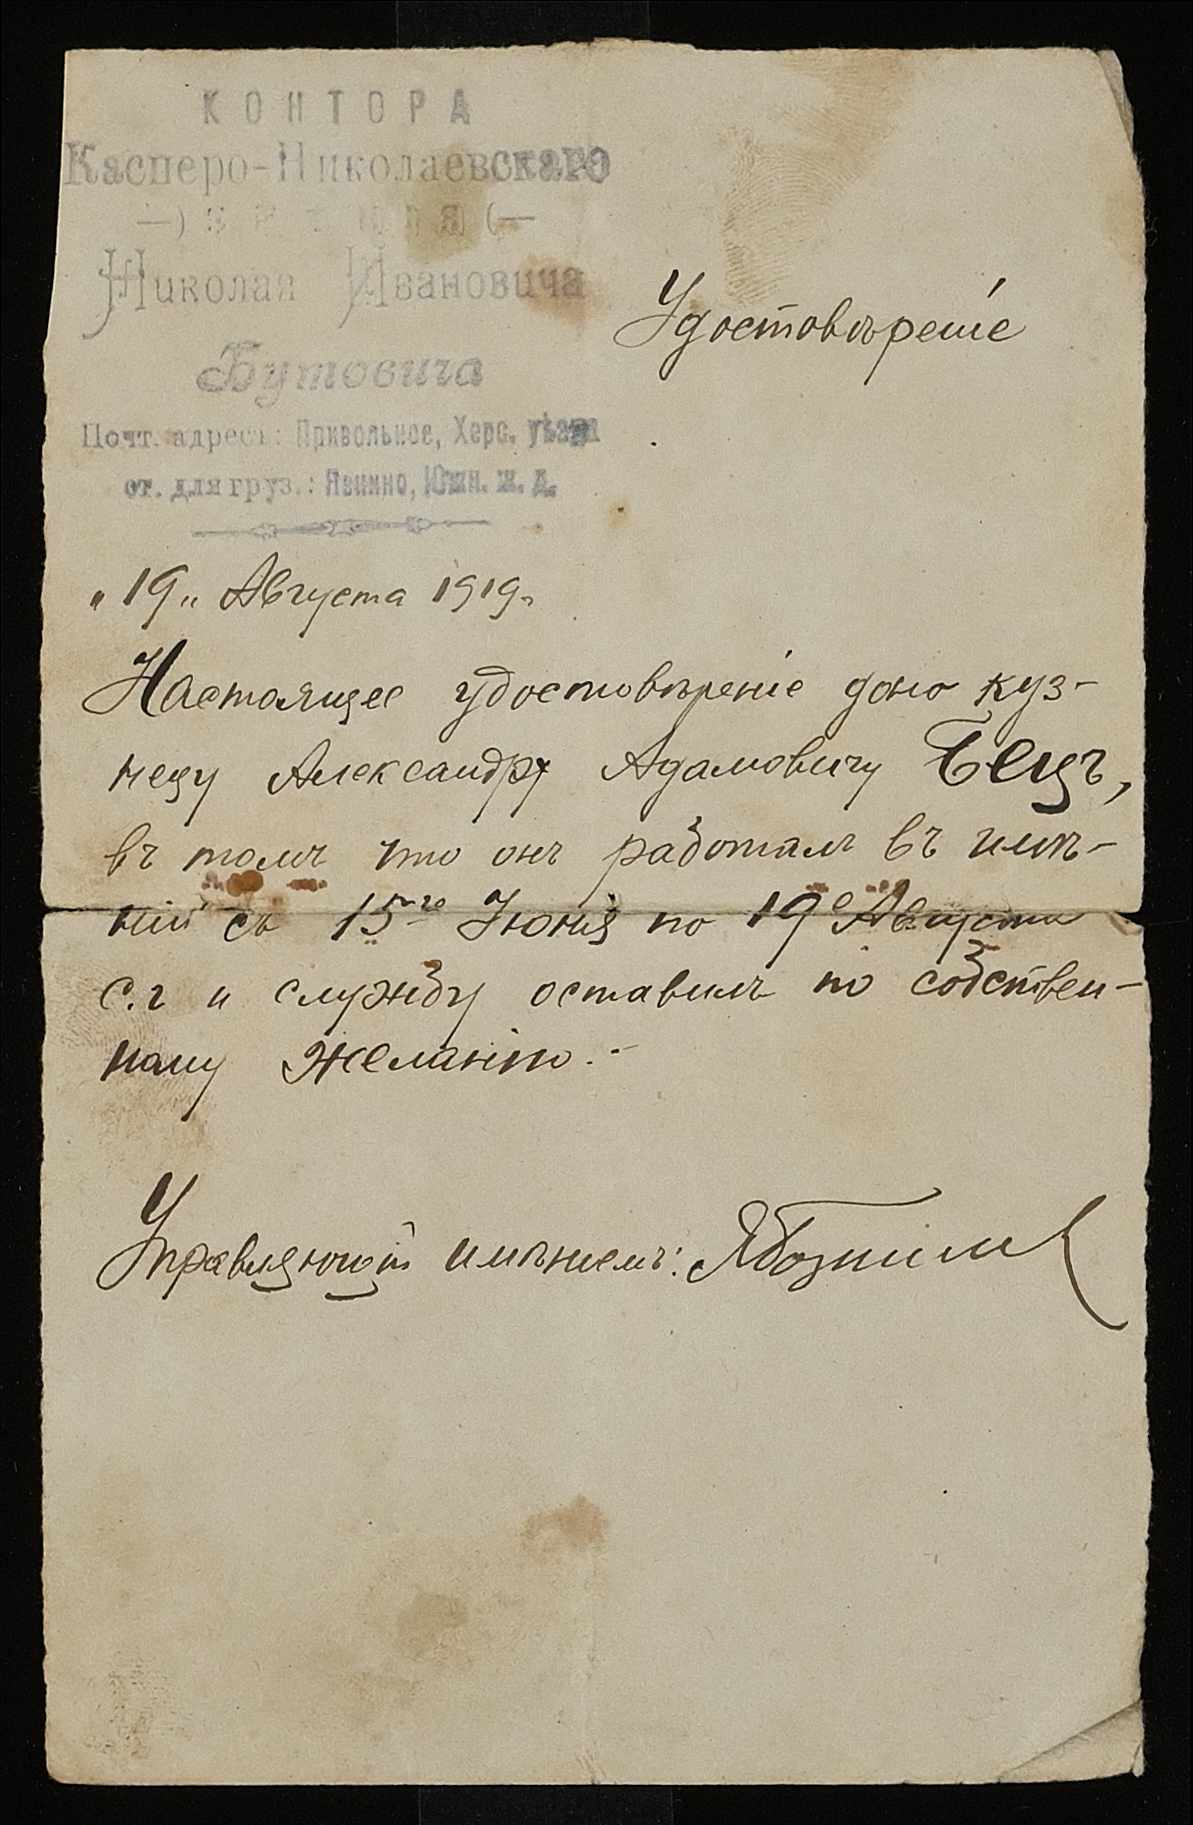 КОНТОРА
Касперо-Николаевскаго
Николая Ивановича
Бутовича
Почт. адресъ: Привольное, Херс. уѣзда
ст. для груз.: Явкино, Южн. ж. д.
Удостовѣреніе
„19„ Августа 1919г
Настоящее удостовѣреніе дано куз-
нецу Александру Адамовичу Бецъ,
въ томъ что онъ работалъ въ имѣ-
ніи съ 15го Іюня по 19е Августа
с.г и службу оставилъ по собствен-
ному желанію.-
Управляющій имѣніемъ: